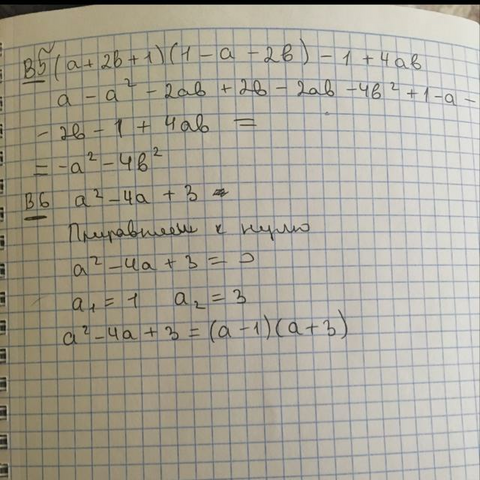 В5 (a+2b+1)(1-a-2b)-1+4ab
a-a²-2ab+2b-2ab-4b²+1-a-
-2b-1+4ab=
=-a²-4b²
В6 a²-4a+3=
Приравняем к нулю
a²-4a+3=0
a₁=1 a₂=3
a²-4a+3=(a-1)(a+3)